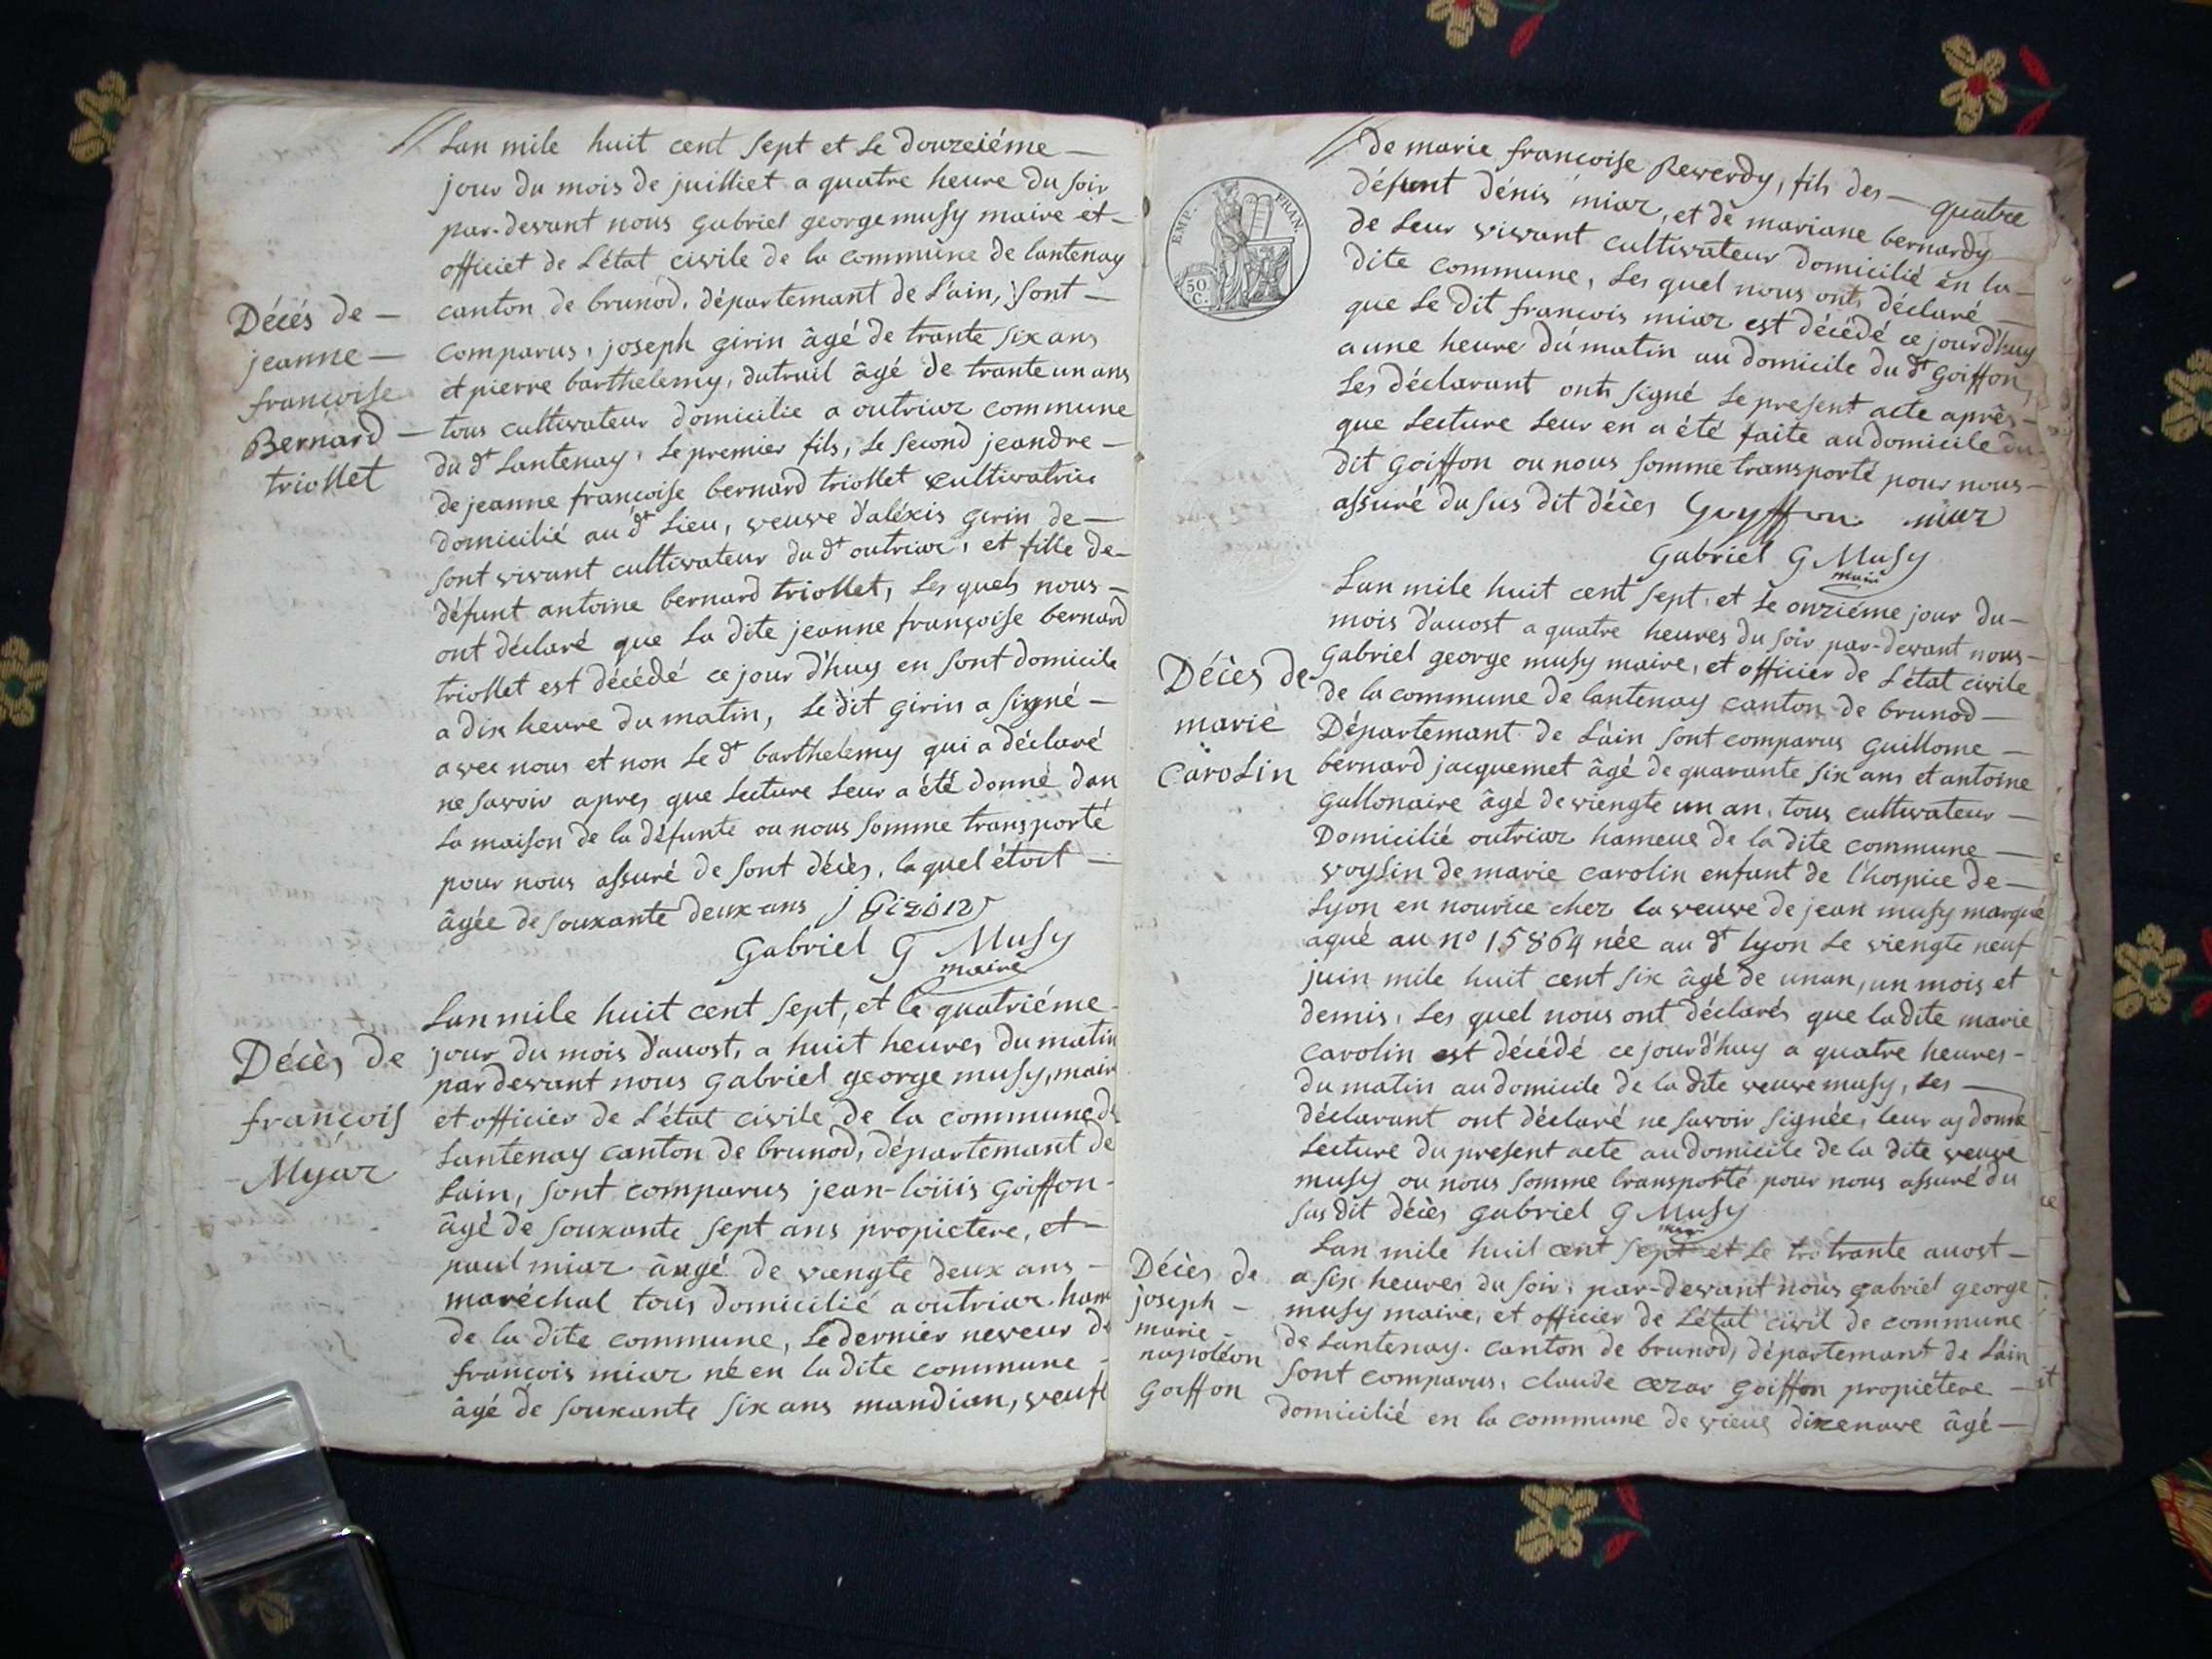 Lan mile huit cent sept et le douzeiéme —
jour du mois de juilliet a quatre heure du soir
par-devant nous gabriel george musy maire et —
officiet de L'état civile de la commune de lantenay
canton de brunod, départemant de L'ain, sont —
comparus, joseph girin âgé de trante six ans
et pierre barthelemy, dutruil âgé de trante un ans
tous cultivateur domicilie a outriaz commune
du dt Lantenay, le premier fils, le second jeandre —
de jeanne françoise bernard triollet cultivatrice
domicilié au dt Lieu, veuve d'aléxis girin de —
sont vivant cultivateur du dt outriaz, et fille de —
défunt antoine bernard triollet, les quels nous —
ont déclaré que la dite jeanne françoise bernard
triollet est décédé ce jour d'huy en sont domicile
a dix heure du matin, le dit girin a signé —
avec nous et non le dt barthelemy qui a déclaré
ne savoir apres que lecture leur a été donné dan
la maison de la défunte ou nous somme transporté
pour nous assuré de sont décès, laquel étoit —
âgée de souxante deux ans j Girin
Gabriel G Musy
maire
Décés de —
jeanne —
françoise
Bernard —
triollet
Lan mile huit cent sept, et le quatriéme
jour du mois d'auost, a huit heures du matin
par devant nous gabriel george musy, mair
et officier de L'état civile de la commune d
Lantenay canton de brunod, départemant de
Lain, sont comparus jean-loüis goiffon
âgé de souxante sept ans propietere, et —
paul miaz âugé de viengte deux ans —
maréchal tous domicilié a outriaz ham
de la dite commune, le dernier neveur de
françois miaz né en la dite commune
âgé de souxante six ans mandian, veufe
Décès de
françois
Myaz
EMP. FRAN.
50
C.
de marie françoise Reverdy, fils des — quatre
défunt dénis miaz, et de mariane bernardy
de leur vivant cultivateur domicilié en la —
dite commune, les quel nous onts déclaré —
que le dit françois miaz est décédé ce jourd'huy
a une heure du matin au domicile du dt goiffon,
les déclarant onts signé le present acte après —
que lecture leur en a été faite au domicile du
dit goiffon ou nous somme transporté pour nous —
assuré du sus dit décès Goyffon miaz
Gabriel G Musy
maire
Lan mile huit cent sept, et le onziéme jour du —
mois d'auost a quatre heures du soir par-devant nous —
gabriel george musy maire, et officier de L'état civile
de la commune de lantenay canton de brunod —
Départemant de Lain sont comparus guillome —
bernard jacquemet âgé de quarante six ans et antoine
gallonaire âgé de viengte un an, tous cultivateur —
Domicilié outriaz hameue de la dite commune —
voysin de marie carolin enfant de l'hospice de —
Lyon en nourice chez la veuve de jean musy marqué
aqué au no 15864 née au dt lyon le viengte neuf
juin mile huit cent six âgé de unan, un mois et
demis, les quel nous ont déclarés que ladite marie
carolin est décédé ce jourd'huy a quatre heures —
du matin au domicile de la dite veuve musy, les —
déclarant ont déclaré ne savoir signée, leur aj donné
lecture du present acte au domicile de la dite veuve
musy ou nous somme transporté pour nous assuré du
sus dit décès gabriel G Musy
maire
Décès de
marie
Carolin
Lan mile huit cent sept et le tro trante auost —
a six heures du soir, par-devant nous gabriel george
musy maire, et officier de L'état civil de commune
de Lantenay. canton de brunod, départemant de Lain
sont comparus, claude cezar goiffon propiétere —
domicilié en la commune de vieux dizenave âgé —
Décès de
joseph —
marie —
napoléon
Goiffon